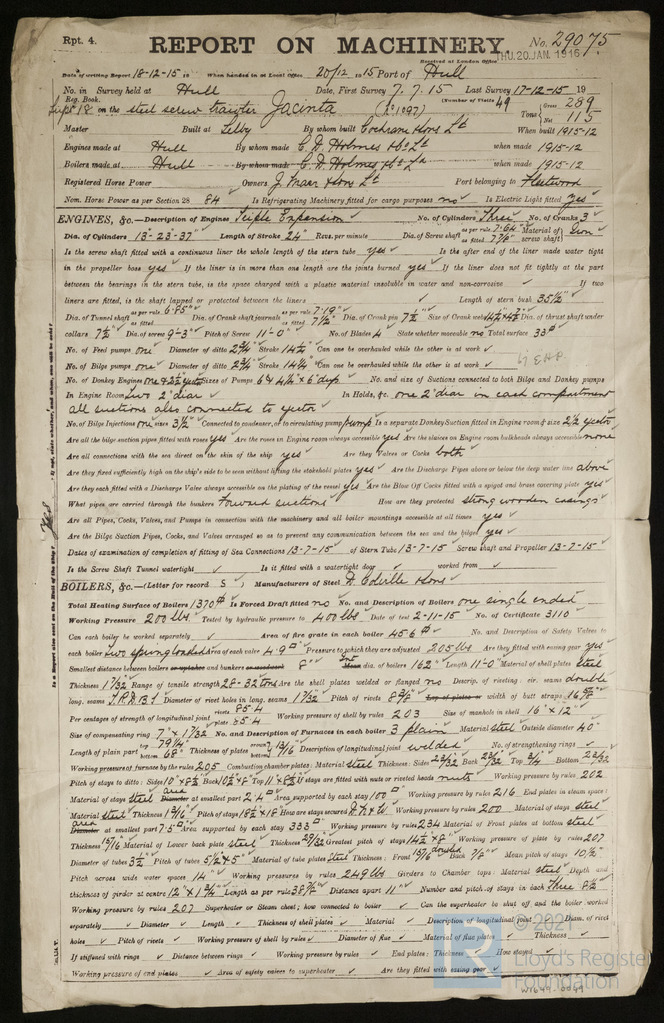 Rpt. 4.
REPORT ON MACHINERY. No. 29075
THU. 20 JAN. 1916
Received at London Office
Date of writing Report 18-12-15 19 When handed in at Local Office 20/12 1915 Port of Hull
No. in Survey held at Hull Date, First Survey 7.7.15 Last Survey 17-12-15 19
Reg. Book. (Number of Visits 49
18 on the steel screw trawler Jacinta Tons Gross 289 Net 115
Master Built at Selby By whom built Cochrane & Sons Ld When built 1915-12
Engines made at Hull By whom made C. D. Holmes & Co Ld when made 1915-12
Boilers made at Hull By whom made C. D. Holmes & Co Ld when made 1915-12
Registered Horse Power Owners J. Marr & Son Ld Port belonging to Fleetwood
Nom. Horse Power as per Section 28 84 Is Refrigerating Machinery fitted for cargo purposes no Is Electric Light fitted yes
ENGINES, &c.—Description of Engines Triple Expansion No. of Cylinders Three No. of Cranks 3
Dia. of Cylinders 13"-23-37" Length of Stroke 24" Revs. per minute Dia. of Screw shaft as per rule 7.64 as fitted 7 7/8" Material of screw shaft Iron
Is the screw shaft fitted with a continuous liner the whole length of the stern tube yes Is the after end of the liner made water tight
in the propeller boss yes If the liner is in more than one length are the joints burned yes If the liner does not fit tightly at the part
between the bearings in the stern tube, is the space charged with a plastic material insoluble in water and non-corrosive If two
liners are fitted, is the shaft lapped or protected between the liners Length of stern bush 35 1/2"
Dia. of Tunnel shaft as per rule 6.85" as fitted Dia. of Crank shaft journals as per rule 7.19" as fitted 7 1/2" Dia. of Crank pin 7 1/2" Size of Crank webs Dia. of thrust shaft under
collars 7 1/2" Dia. of screw 9'-3" Pitch of Screw 11'-0" No. of Blades 4 State whether moveable no Total surface 33
No. of Feed pumps one Diameter of ditto 2 3/4" Stroke 14 1/2" Can one be overhauled while the other is at work
No. of Bilge pumps one Diameter of ditto 2 3/4" Stroke 14 1/2" Can one be overhauled while the other is at work
No. of Donkey Engines Sizes of Pumps No. and size of Suctions connected to both Bilge and Donkey pumps
In Engine Room two 2" diar In Holds, &c. one 2" diar in each compartment
all suctions also connected to ejector
No. of Bilge Injections one sizes 3 1/2" Connected to condenser, or to circulating pump pump Is a separate Donkey Suction fitted in Engine room & size 2 1/2 ejector
Are all the bilge suction pipes fitted with roses yes Are the roses in Engine room always accessible yes Are the sluices on Engine room bulkheads always accessible none
Are all connections with the sea direct on the skin of the ship yes Are they Valves or Cocks both
Are they fixed sufficiently high on the ship's side to be seen without lifting the stokehold plates yes Are the Discharge Pipes above or below the deep water line above
Are they each fitted with a Discharge Valve always accessible on the plating of the vessel yes Are the Blow Off Cocks fitted with a spigot and brass covering plate yes
What pipes are carried through the bunkers Forward suctions How are they protected strong wooden casings
Are all Pipes, Cocks, Valves, and Pumps in connection with the machinery and all boiler mountings accessible at all times yes
Are the Bilge Suction Pipes, Cocks, and Valves arranged so as to prevent any communication between the sea and the bilges yes
Dates of examination of completion of fitting of Sea Connections 13-7-15 of Stern Tube 13-7-15 Screw shaft and Propeller 13-7-15
Is the Screw Shaft Tunnel watertight Is it fitted with a watertight door worked from
BOILERS, &c.—(Letter for record S) Manufacturers of Steel D. Colville & Sons
Total Heating Surface of Boilers 1370 Is Forced Draft fitted no No. and Description of Boilers one single ended
Working Pressure 200 lbs Tested by hydraulic pressure to 400 lbs Date of test 2-11-15 No. of Certificate 3110
Can each boiler be worked separately Area of fire grate in each boiler 45.6 No. and Description of Safety Valves to
each boiler Two spring loaded Area of each valve 4.9 Pressure to which they are adjusted 205 lbs Are they fitted with easing gear yes
Smallest distance between boilers or uptakes and bunkers or woodwork 8" Int dia. of boilers 162" Length 11'-0 Material of shell plates steel
Thickness 1 7/32 Range of tensile strength 28-32 tons Are the shell plates welded or flanged no Descrip. of riveting: cir. seams double
long. seams T.R.D.B.S Diameter of rivet holes in long. seams 1 7/32 Pitch of rivets 8 5/8" Lap of plates or width of butt straps
Per centages of strength of longitudinal joint rivets 85.4 plate 85.4 Working pressure of shell by rules 203 Size of manhole in shell 16" x 12"
Size of compensating ring 7" x 1 7/32 No. and Description of Furnaces in each boiler 3 plain Material steel Outside diameter 40"
Length of plain part top 79 1/4" bottom 68" Thickness of plates crown bottom 13/16 Description of longitudinal joint welded No. of strengthening rings
Working pressure of furnace by the rules 205 Combustion chamber plates: Material steel Thickness: Sides 23/32 Back 23/32 Top 3/4 Bottom 23/32
Pitch of stays to ditto: Sides 10" x 8 1/2 Back 10 1/2 x 8 Top 11" x 8 1/2 If stays are fitted with nuts or riveted heads nuts Working pressure by rules 202
Material of stays steel area Diameter at smallest part 2.4 Area supported by each stay 100 Working pressure by rules 216 End plates in steam space:
Material steel Thickness 1 3/16" Pitch of stays 18 1/2 x 18" How are stays secured D.N. & W. Working pressure by rules 200 Material of stays steel
area Diameter at smallest part 7.5 Area supported by each stay 333 Working pressure by rules 234 Material of Front plates at bottom steel
Thickness 15/16" Material of Lower back plate steel Thickness 29/32 Greatest pitch of stays 14 1/2 x 8" Working pressure of plate by rules 207
Diameter of tubes 3 1/2 Pitch of tubes 5 1/2 x 5" Material of tube plates steel Thickness: Front 15/16 doubled Back 7/8" Mean pitch of stays 10 1/2
Pitch across wide water spaces 14" Working pressures by rules 249 lbs Girders to Chamber tops: Material steel Depth and
thickness of girder at centre 12" x 1 3/4 Length as per rule 38 7/8 Distance apart 11" Number and pitch of stays in each Three 8 1/2"
Working pressure by rules 207 Superheater or Steam chest; how connected to boiler Can the superheater be shut off and the boiler worked
separately Diameter Length Thickness of shell plates Material Description of longitudinal joint Diam. of rivet
holes Pitch of rivets Working pressure of shell by rules Diameter of flue Material of flue plates Thickness
If stiffened with rings Distance between rings Working pressure by rules End plates: Thickness How stayed
Working pressure of end plates Area of safety valves to superheater Are they fitted with easing gear
© 2021
Lloyd's Register
Foundation
W1649-0049